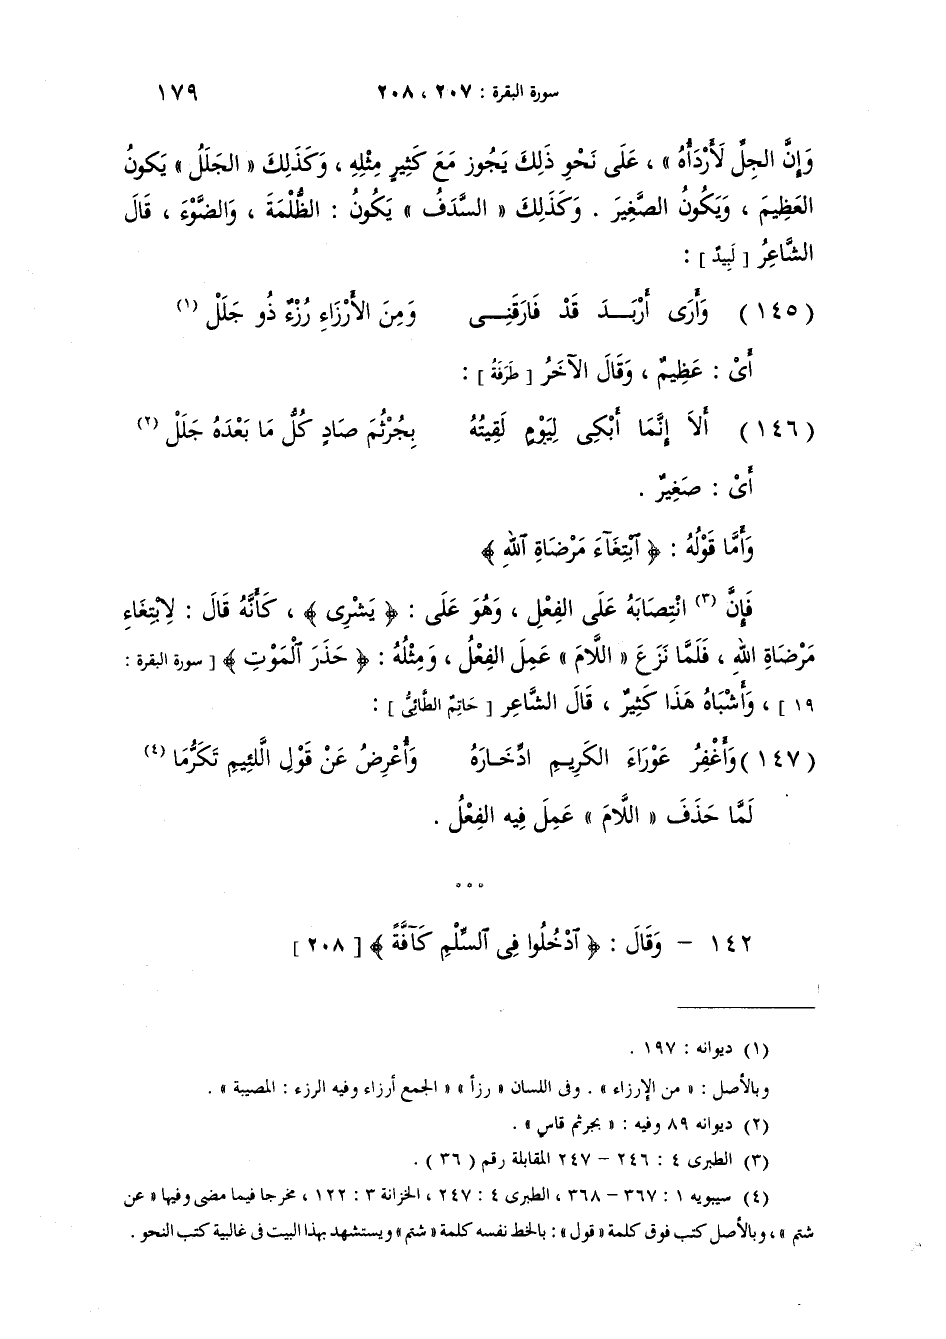 سورة البقرة : ٢٠٧ ، ٢٠٨ ١٧٩
وَإِنَّ الجِلِّ لَأَرْدَأُهُ » ، عَلَى نَحْوِ ذَلِكَ يَجُوز مَعَ كَثِيرٍ مِثْلِهِ ، وَكَذَلِكَ « الجَلَلُ » يَكونُ
العَظِيمَ ، وَيَكُونُ الصَّغِيرَ . وَكَذَلِكَ « السَّدَفُ » يَكُونُ : الظُّلْمَةَ ، وَالضَّوْءَ ، قَالَ
الشَّاعِرُ [ لَبِيدٌ ] :
( ١٤٥ ) وَأَرَى أَرْبَـــدَ قَدْ فَارَقَنِـــى وَمِنَ الأَرْزَاءِ رُزْءٌ ذُو جَلَلْ (١)
أَىْ : عَظِيمٌ ، وَقَالَ الآخَرُ [ طَرَفَةُ ] :
( ١٤٦ ) أَلاَ إِنَّمَا أَبْكِى لِيَوْمٍ لَقِيتُهُ بِجُرْثُمَ صَادٍ كُلُّ مَا بَعْدَهُ جَلَلْ (٢)
أَىْ : صَغِيرٌ .
وَأَمَّا قَوْلُهُ : ﴿ ٱبْتِغَآءَ مَرْضَاةِ ٱللهِ ﴾
فَإِنَّ (٣) انْتِصَابَهُ عَلَى الفِعْلِ ، وَهُوَ عَلَى : ﴿ يَشْرِى ﴾ ، كَأَنَّهُ قَالَ : لِابْتِغَاءِ
مَرْضَاةِ اللهِ ، فَلَمَّا نَزَعَ « اللَّامَ » عَمِلَ الفِعْلُ ، وَمِثْلُهُ : ﴿ حَذَرَ ٱلْمَوْتِ ﴾ [ سورة البقرة :
١٩ ] ، وَأَشْبَاهُ هَذَا كَثِيرٌ ، قَالَ الشَّاعِر [ حَاتِمُ الطَّائِىُّ ] :
( ١٤٧ ) وَأَغْفِرُ عَوْرَاءَ الكَرِيـمِ ادِّخَارَهُ وَأُعْرِضُ عَنْ قَوْلِ الَّلئِيمِ تَكَرُّمَا (٤)
لَمَّا حَذَفَ « اللَّامَ » عَمِلَ فِيه الفِعْلُ .
° ° °
١٤٢ – وَقَالَ : ﴿ ٱدْخُلُوا فِى ٱلسِّلْمِ كَآفَّةً ﴾ [ ٢٠٨ ]
(١) ديوانه : ١٩٧ .
وبالأصل : « من الإرزاء » . وفى اللسان « رزأ » « الجمع أرزاء وفيه الرزء : المصيبة » .
(٢) ديوانه ٨٩ وفيه : « بجرثم قاس » .
(٣) الطبرى ٤ : ٢٤٦ – ٢٤٧ المقابلة رقم ( ٣٦ ) .
(٤) سيبويه ١ : ٣٦٧ – ٣٦٨ ، الطبرى ٤ : ٢٤٧ ، الخزانة ٣ : ١٢٢ ، مخرجا فيما مضى وفيها « عن
شتم » ، وبالأصل كتب فوق كلمة « قول » : بالخط نفسه كلمة « شتم » ويستشهد بهذا البيت فى غالبية كتب النحو .